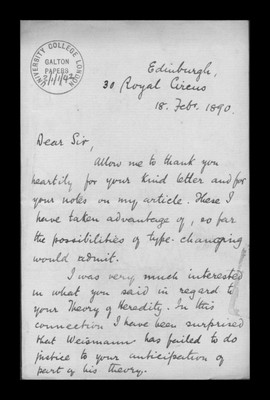 UNIVERSITY COLLEGE LONDON
GALTON
PAPERS
Edinburgh,
30 Royal Circus
18. Feb. 1890.
Dear Sir,
Allow me to thank you
heartily for your kind letter and for
your notes on my article. These I
have taken advantage of, so far
the possibilities of type-changing
would admit.
I was very much interested
in what you said in regard to
your Theory of Heredity. In this
connection I have been surprised
that Weismann has failed to do
justice to your anticipation of
part of his theory.